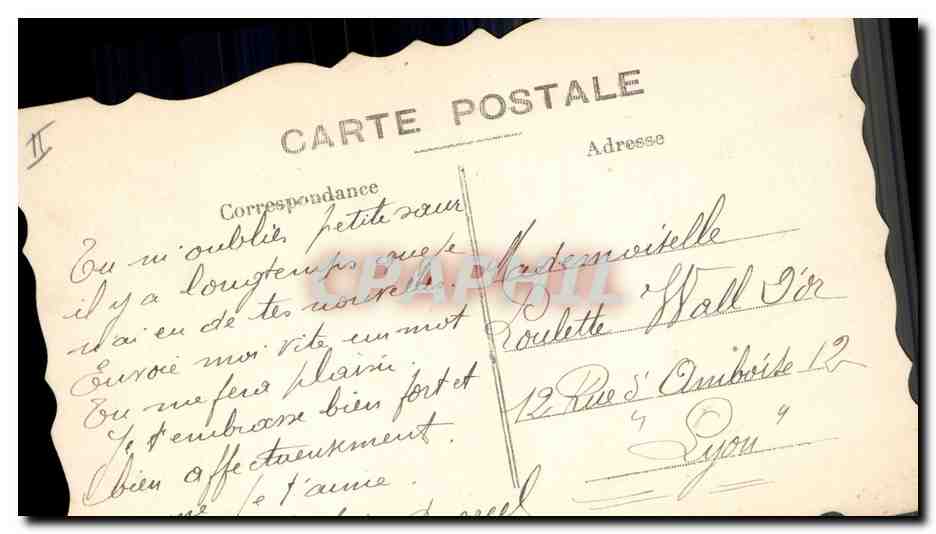 II
CARTE POSTALE
Correspondance
Adresse
Tu m'oublies petite sœur
il y a longtemps que je
n'ai eu de tes nouvelles.
Envoie moi vite un mot
Tu me fera plaisir.
Je t'embrasse bien fort et
bien affectueusement.
je t'aime.
Mademoiselle
Poulette Wall D'or
12 Rue d'Amboise 12
" Lyon "
CPAPHIL